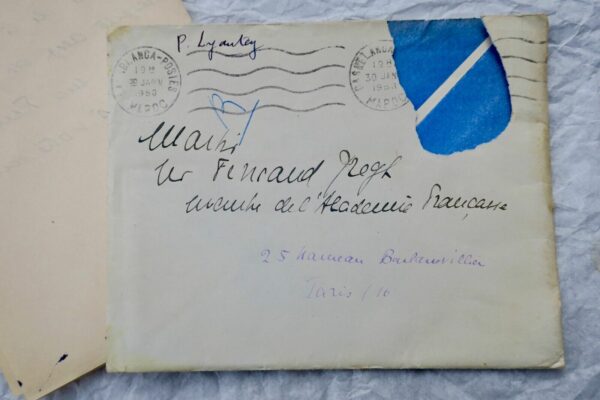 P. Lyautey
CASABLANCA-POSTES
19 H
30 JANV
1960
MAROC
CASABLANCA
19 H
30 JANV
MAROC
Maître
Mr Fernand Gregh
membre de l'Académie Française
25 hameau Boulainvilliers
Paris / 16